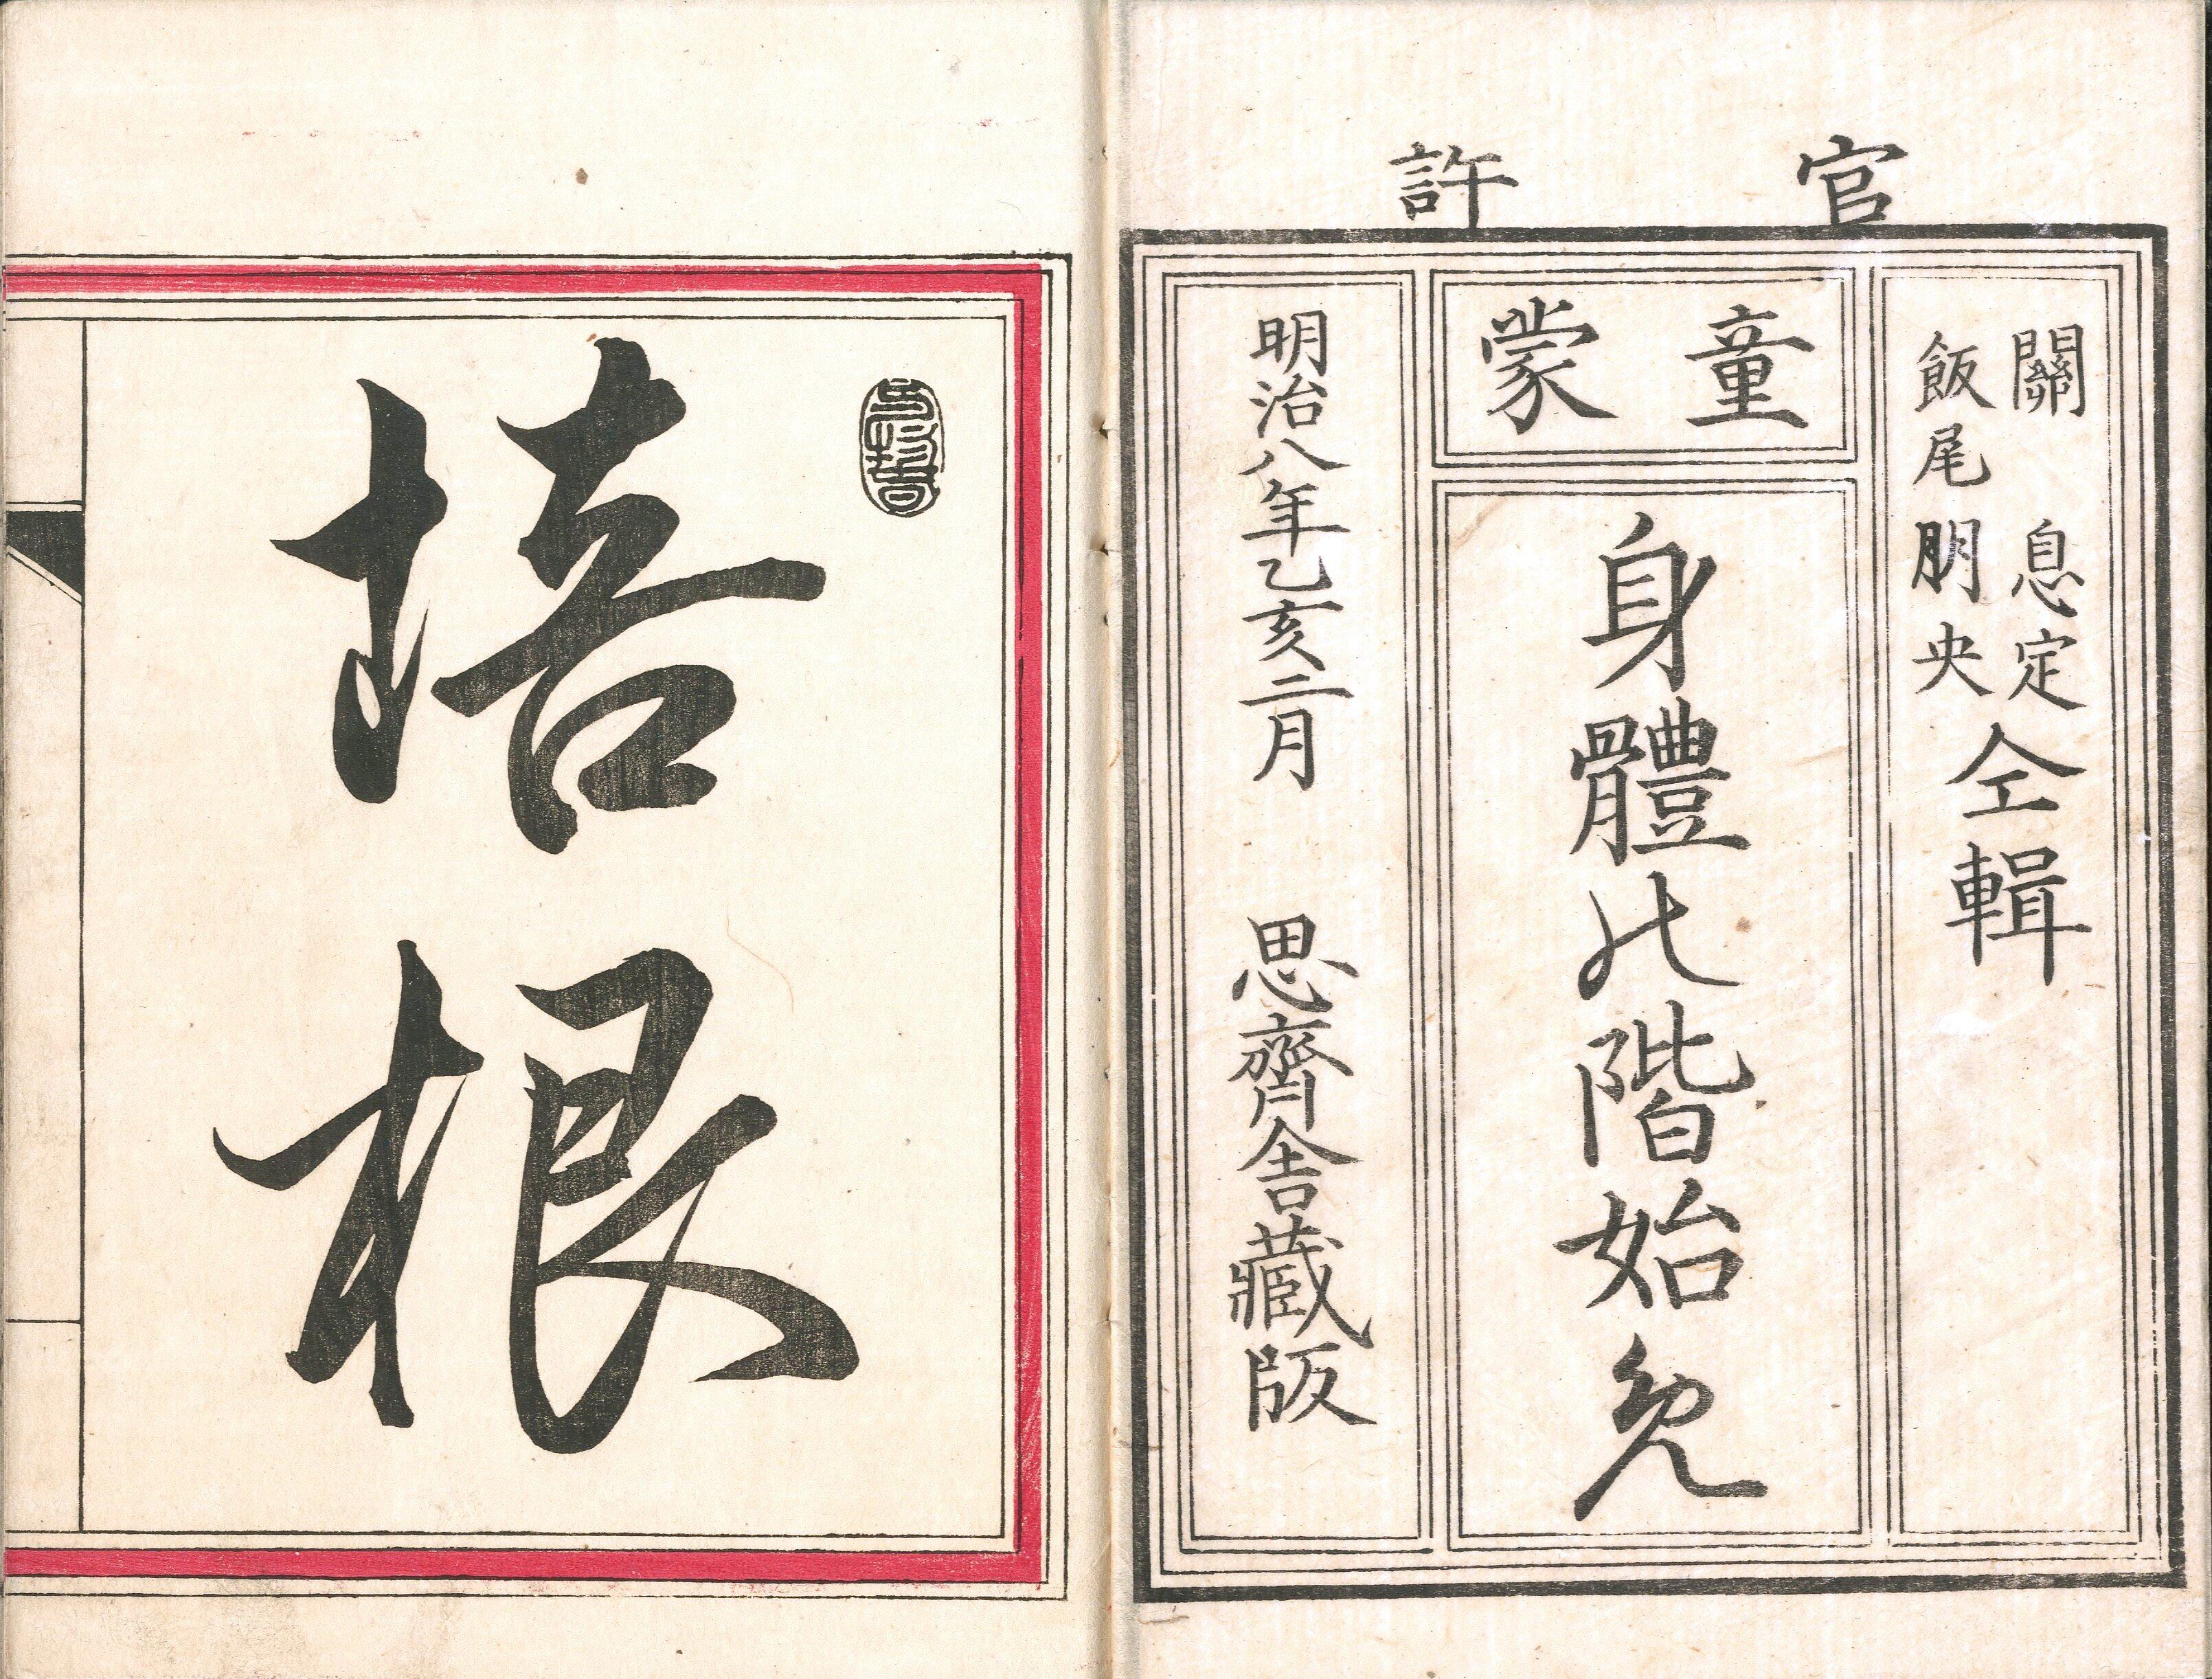 官許
關 息定
飯尾明央
仝輯
童蒙
身體乃階始免
明治八年乙亥二月 思齊舍藏版
培根